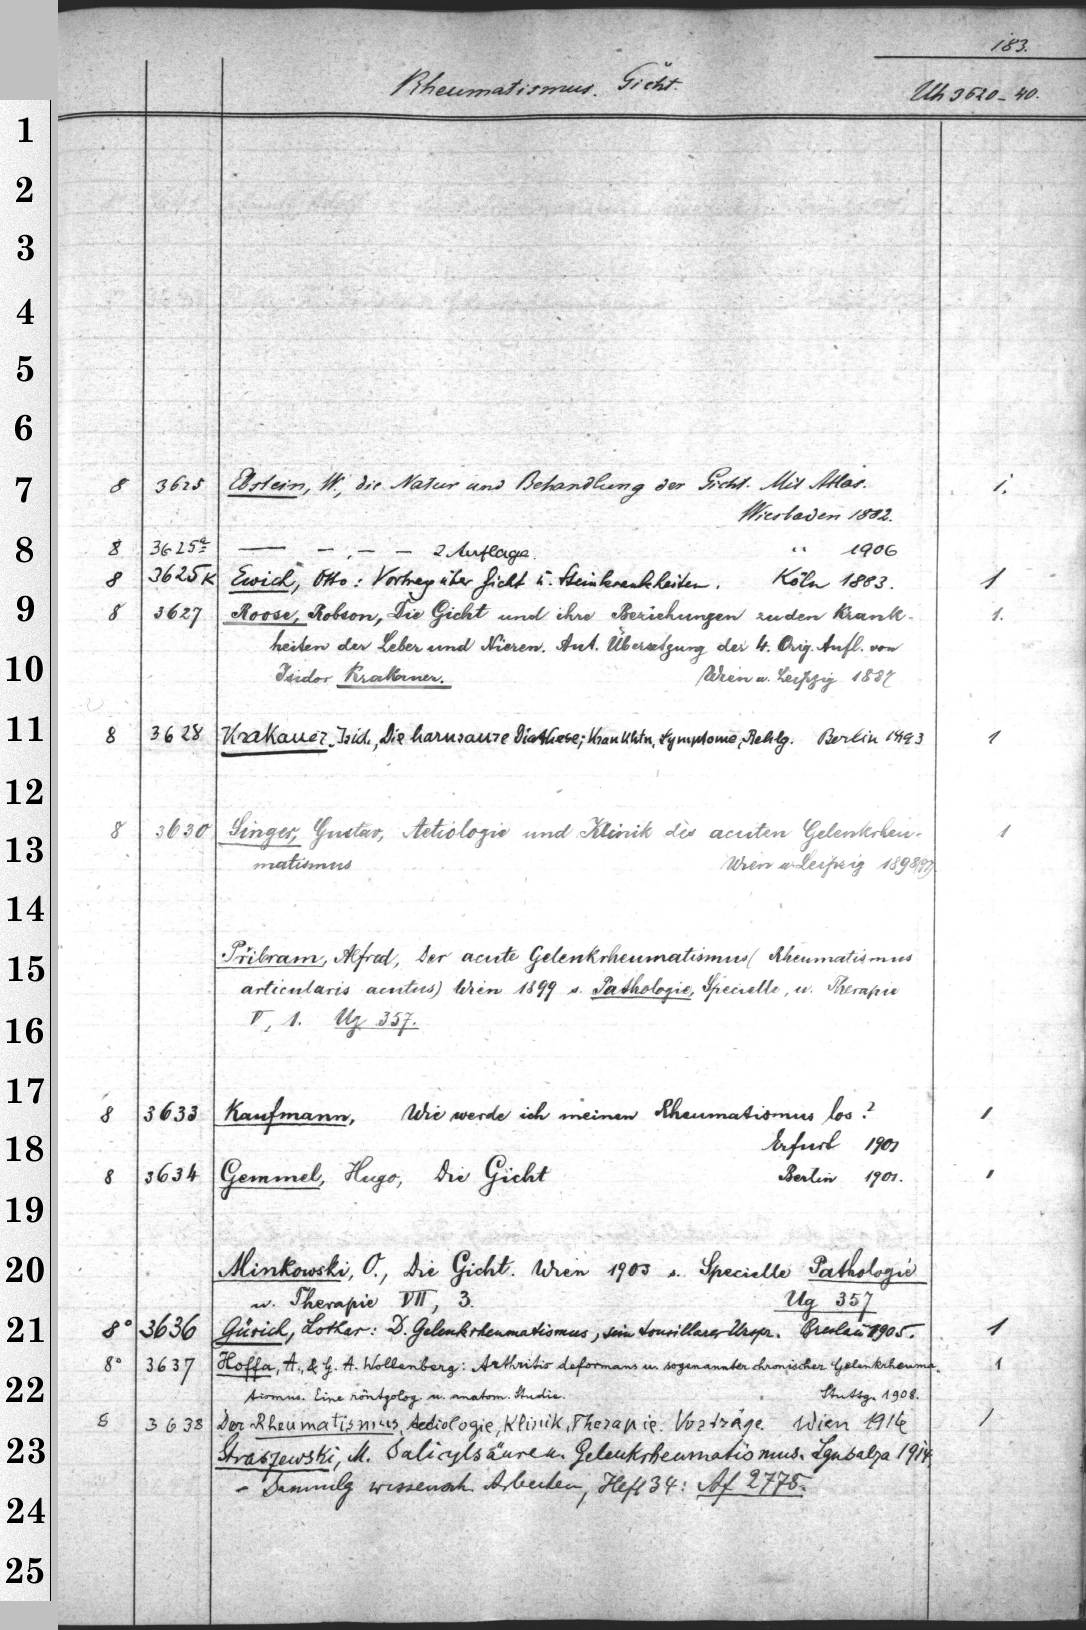 183.
Rheumatismus. Gicht.
Uh 3620-40.
1
2
3
4
5
6
7
8 3625 Ebstein, W., die Natur und Behandlung der Gicht. Mit Atlas. 1.
Wiesbaden 1882.
8
8 3625a — — , — — 2. Auflage. " 1906
8 3625K Ewich, Otto: Vortrag über Gicht u. Steinkrankheiten. Köln 1883. 1
9
8 3627 Roose, Robson, Die Gicht und ihre Beziehungen zu den Krank- 1.
heiten der Leber und Nieren. Aut. Übersetzung der 4. Orig. Aufl. von
10
Isidor Krakauer. Wien u. Leipzig 1887
11
8 3628 Krakauer, Isid., Die harnsaure Diathese; Krankhtn, Symptome, Behlg. Berlin 1893 1
12
8 3630 Singer, Gustav, Aetiologie und Klinik des acuten Gelenkrheu- 1
13
matismus Wien u. Leipzig 1898
14
Přibram, Alfred, Der acute Gelenkrheumatismus (Rheumatismus
15
articularis acutus) Wien 1899 s. Pathologie, Specielle, u. Therapie
V, 1. Ug 357.
16
17
8 3633 Kaufmann, Wie werde ich meinen Rheumatismus los? 1
Erfurt 1901
18
8 3634 Gemmel, Hugo, Die Gicht Berlin 1901. 1
19
20
Minkowski, O., Die Gicht. Wien 1903 s. Specielle Pathologie
u. Therapie VII, 3. Ug 357
21
8° 3636 Gürich, Lothar: D. Gelenkrheumatismus, sein tonsillarer Urspr. Breslau 1905. 1
8° 3637 Hoffa, A., & G. A. Wollenberg: Arthritis deformans u. sogenannter chronischer Gelenkrheuma- 1
22
tismus. Eine röntgolog. u. anatom. Studie. Stuttg. 1908.
8 3638 Der Rheumatismus, Aetiologie, Klinik, Therapie. Vorträge. Wien 1914 1
23
Straszewski, M. Salicylsäure u. Gelenkrheumatismus. Lgnsalza 1914
- Sammlg wissensch. Arbeiten, Heft 34: Af 2775.
24
25